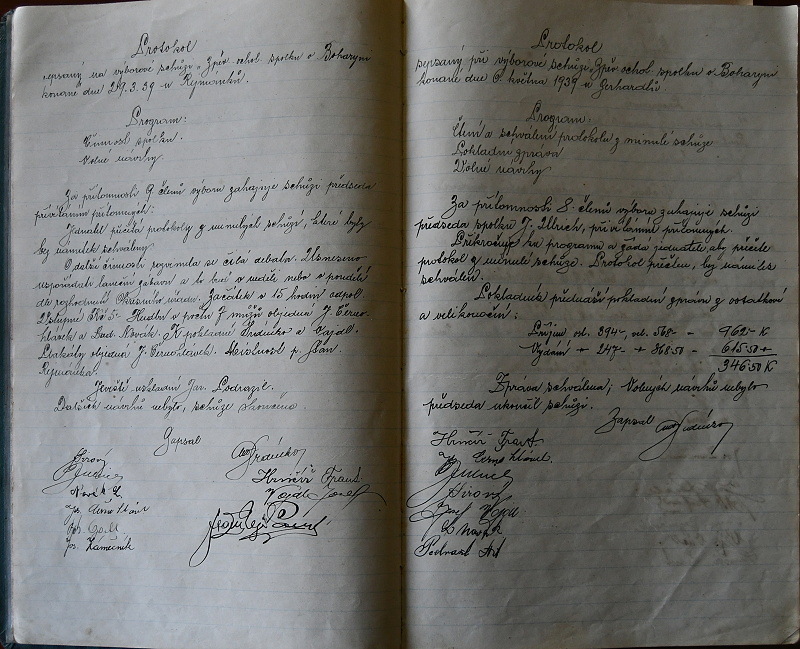 Protokol
sepsaný na výborové schůzi "Zpěv. ochot. spolku v Boharyni
konané dne 29.3.39 u Rejmánků.
Program:
Činnost spolku.
Volné návrhy.
Za přítomnosti 9 členů výboru zahajuje schůzi předseda
přivítáním přítomných.
Jednatel přečtl protokoly z minulých schůzí, které byly
bez námitek schváleny.
O další činnosti rozvinula se čilá debata. Usneseno
uspořádati taneční zábavu a to buď v neděli neb v pondělí
dle rozhodnutí Okresního úřadu. Začátek v 15 hodin odpol.
Vstupné Kč 5- Hudbu v počtu 7 mužů objedná J. Černo-
hlávek a Lad. Novák. K pokladně Hrdinko a Vajdl.
Plakáty objedná J. Černohlávek. Místnost p. Jan.
Rejmánka.
Hřiště uskladní Jar. Podrazil.
Dalších návrhů nebylo, schůze skončena.
Zapsal
Novák L.
Hrnčíř Frant.
Vajdl Josef
Protokol
sepsaný při výborové schůzi "Zpěv. ochot. spolku v Boharyni
konané dne 6. května 1939 u Gerhardtů.
Program:
Čtení a schválení protokolu z minulé schůze
Pokladní zpráva
Volné návrhy
Za přítomnosti 8. členů výboru zahajuje schůzi
předseda spolku J. Ullrich, přivítáním přítomných.
Přikročuje ku programu a žádá jednatele, aby přečetl
protokol z minulé schůze. Protokol přečten, bez námitek
schválen.
Pokladník přednáší pokladní zprávu z ostatkové
a velikonoční:
Příjem ost. 394-, vel. 568- - 962- K
Vydání + 247- + 368.50 - 615.50 +
346.50 K
Zpráva schválena; Volných návrhů nebylo
předseda ukončil schůzi.
Zapsal
Hrnčíř Frant.
Josef Vajdl
L Novák